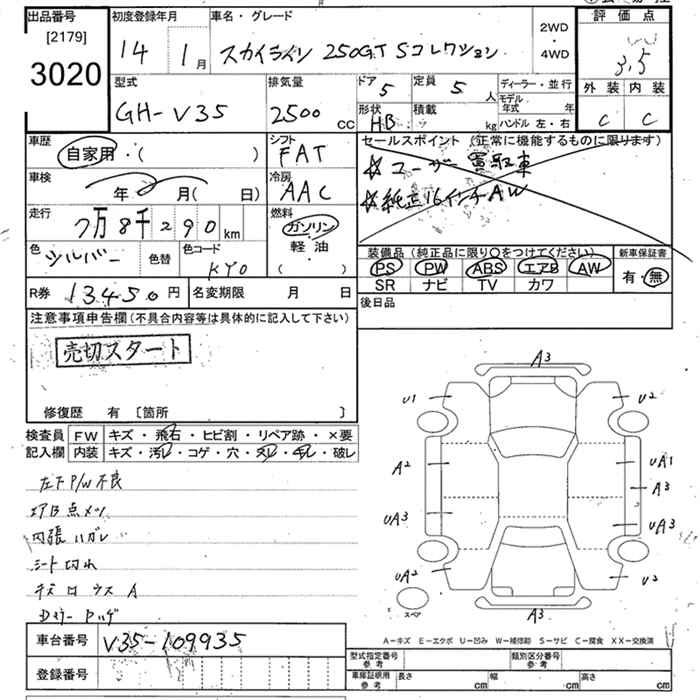 出品番号 初度登録年月 車名・グレード 2WD・4WD 評価点
[2179]
3020 14 1月 スカイライン 250GT Sコレクション 3.5
外装 内装
C C
型式 排気量 ドア 5 定員 5人 ディーラー・並行
GH-V35 2500cc 形状 HB 積載 kg モデル年式 年
ハンドル 左・右
車歴 シフト セールスポイント (正常に機能するものに限ります)
自家用・( ) FAT ☆ユーザー買取車
車検 冷房 ☆純正16インチAW
年 月( 日) AAC
走行 燃料
7万8千290km ガソリン
色 シルバー 色替 色コード KY0 軽・油
( )
装備品(純正品に限り○をつけてください) 新車保証書
PS PW ABS エアB AW 有・無
SR ナビ TV カワ
R券 13450円 名変期限 月 日 後日品
注意事項申告欄(不具合内容等は具体的に記入して下さい)
売切スタート
修復歴 有 〔箇所 〕
検査員 FW キズ・飛石・ヒビ割・リペア跡・×要
記入欄 内装 キズ・汚レ・コゲ・穴・スレ・キレ・破レ
左下P/W不良
エアB点メツ
内張ハガレ
シート切れ
A3
U1 U2
A2 UA1
A3
UA3 UA3
UA2 U2
スペア A3
A-キズ E-エクボ U-凹み W-補修跡 S-サビ C-腐食 XX-交換済
車台番号 V35-109935
登録番号
型式指定番号 参考 類別区分番号 参考
車庫証明用 参考 長さ cm 幅 cm 高さ cm